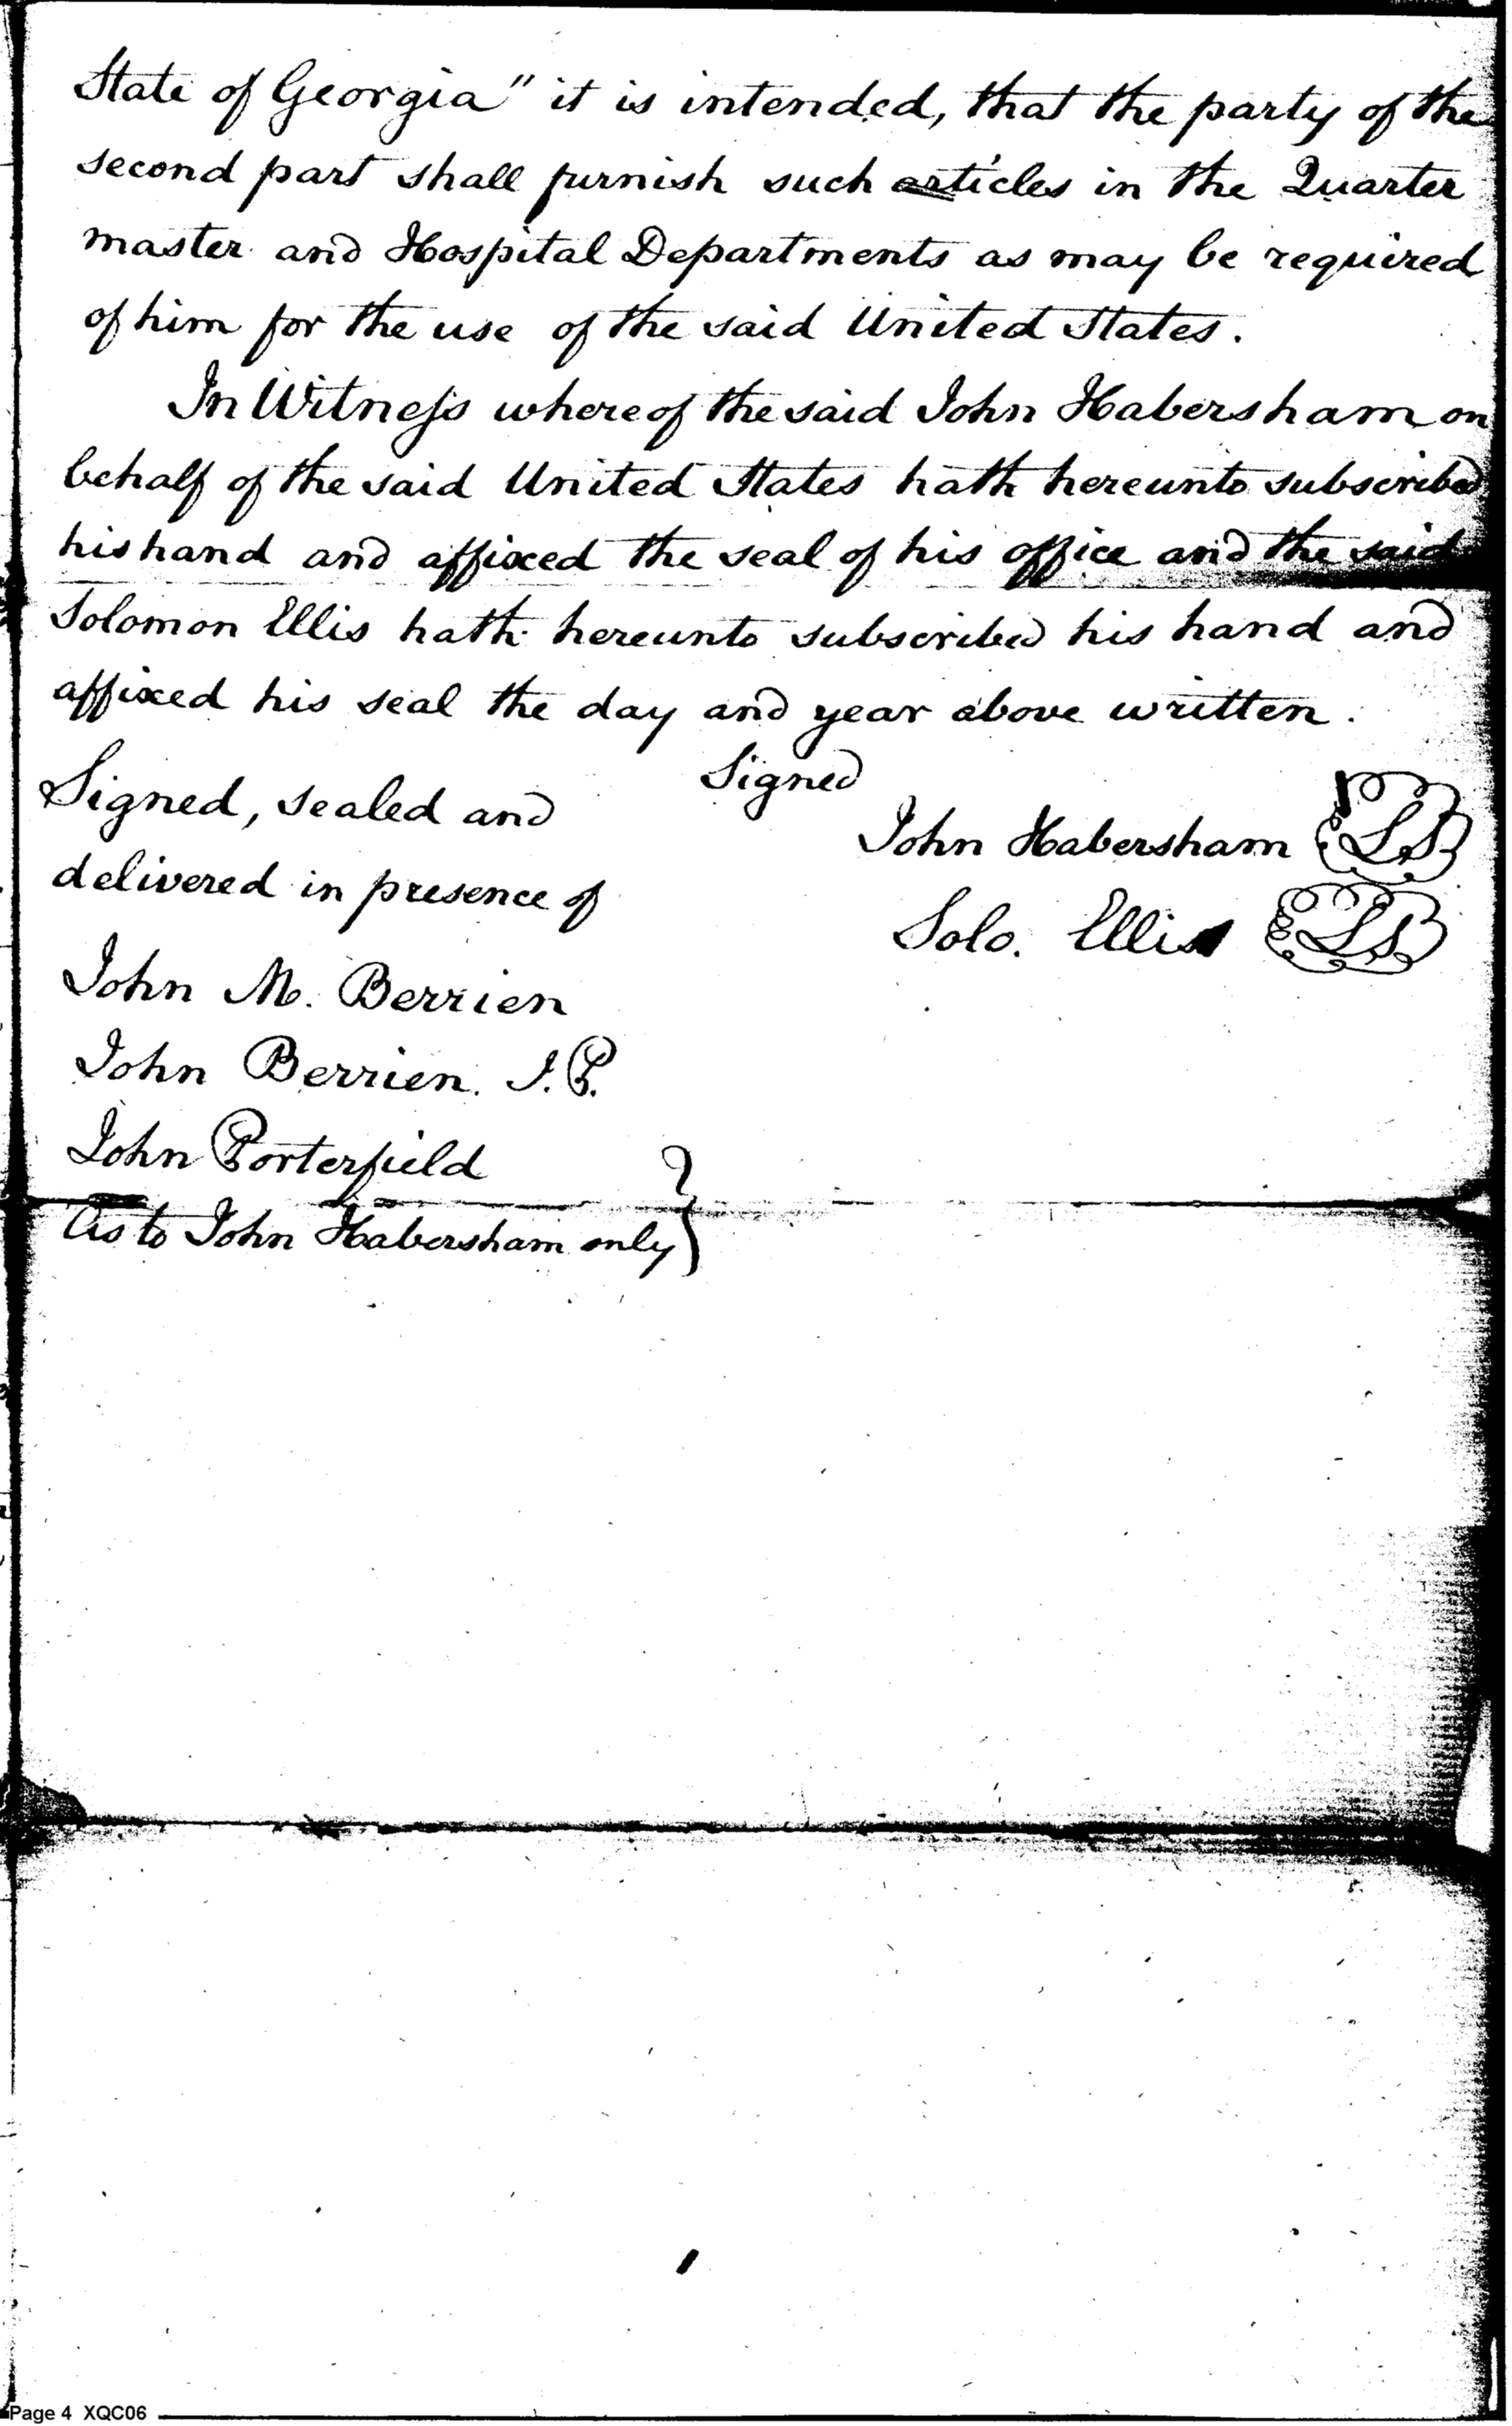 State of Georgia" it is intended, that the party of the
second part shall furnish such articles in the Quarter
master and Hospital Departments as may be required
of him for the use of the said United States.
In Witness whereof the said John Habersham on
behalf of the said United States hath hereunto subscribed
his hand and affixed the seal of his office and the said
Solomon Ellis hath hereunto subscribed his hand and
affixed his seal the day and year above written.
Signed
Signed, sealed and
John Habersham LS
delivered in presence of
Solo. Ellis LS
John M. Berrien
John Berrien. J.P.
John Porterfield
As to John Habersham only }
Page 4 XQC06